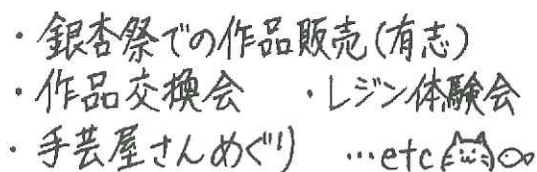 ・銀杏祭での作品販売(有志)
・作品交換会 ・レジン体験会
・手芸屋さんめぐり …etc